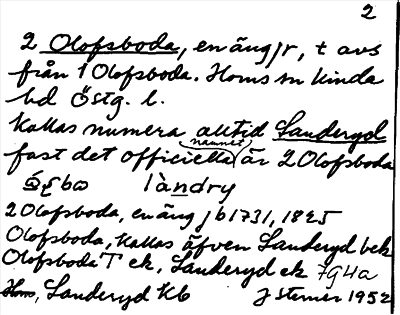 2
2 Olofsboda, en äng jr, t avs
från 1 Olofsboda. Horns sn Kinda
hd Östg. l.
Kallas numera alltid Sanderyd
fast det officiella namnet är 2 Olofsboda
làndry
2 Olofsboda, en äng jb 1731, 1825
Olofsboda, kallas äfven Sanderyd bek
Olofsboda T ek, Sanderyd ek 7g4a
Horns, Sanderyd Kb J Sterner 1952